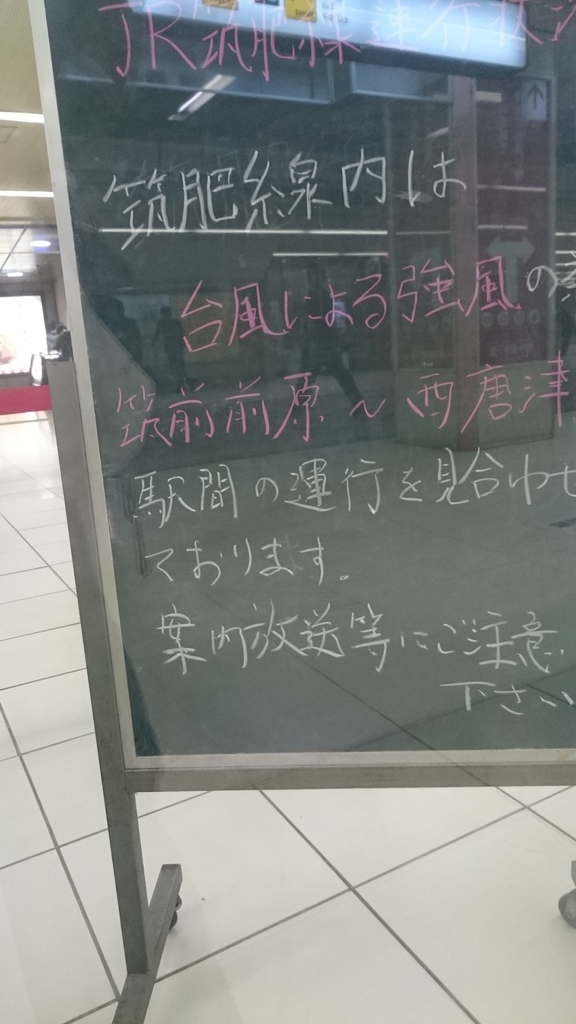 JR筑肥線運行状況
筑肥線内は
台風による強風の
筑前前原～西唐津
駅間の運行を見合わせ
ております。
案内放送等にご注意
下さい